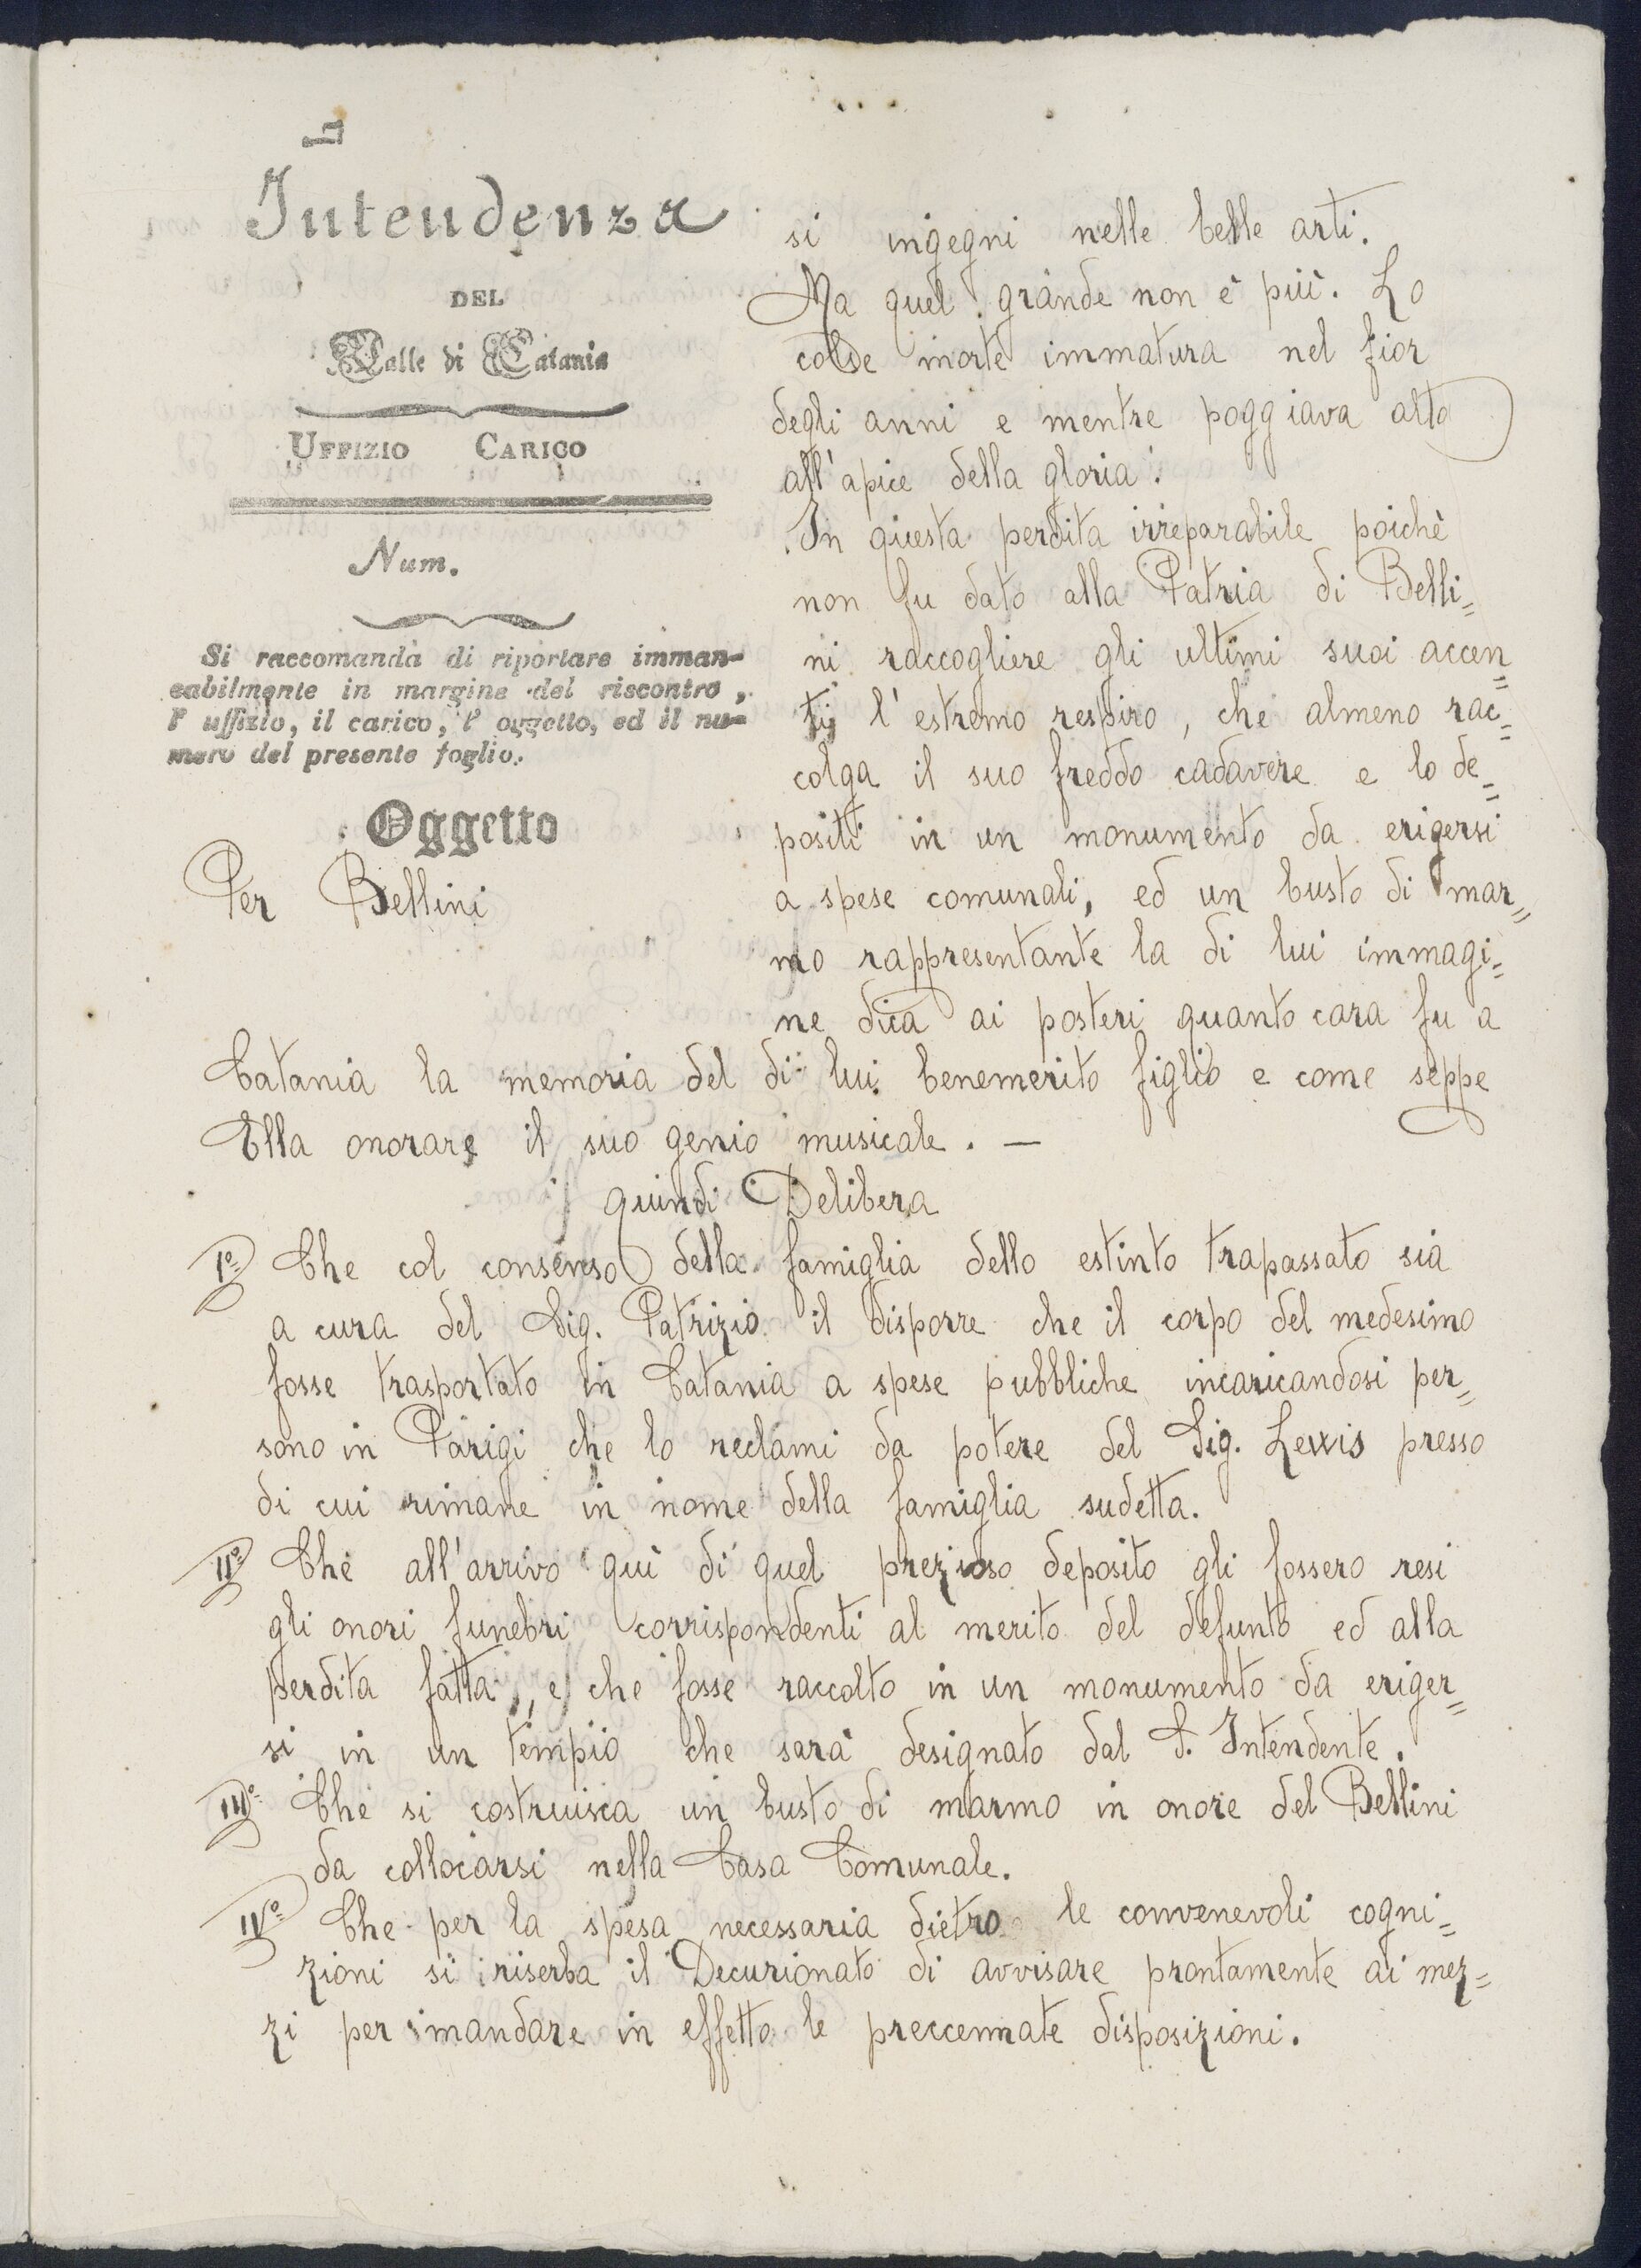 Intendenza
DEL
Valle di Catania
UFFIZIO CARICO
Num.
Si raccomanda di riportare imman-
cabilmente in margine del riscontro,
l' uffizio, il carico, l' oggetto, ed il nu-
mero del presente foglio.
Oggetto
Per Bellini
si ingegni nelle belle arti.
Ma quel grande non è più. Lo
colse morte immatura nel fior
degli anni e mentre poggiava alto
all'apice della gloria.
In questa perdita irreparabile poichè
non fu dato alla Patria di Belli=
ni raccogliere gli ultimi suoi accen=
ti, l'estremo respiro, che almeno rac=
colga il suo freddo cadavere e lo de=
positi in un monumento da erigersi
a spese comunali, ed un busto di mar=
mo rappresentante la di lui immagi=
ne dica ai posteri quanto cara fu a
Catania la memoria del di lui benemerito figlio e come seppe
Ella onorare il suo genio musicale. —
quindi Delibera
I° Che col consenso della famiglia dello estinto trapassato sia
a cura del Sig. Patrizio il disporre che il corpo del medesimo
fosse trasportato in Catania a spese pubbliche incaricandosi per=
sono in Parigi che lo reclami da potere del Sig. Lewis presso
di cui rimane in nome della famiglia sudetta.
II° Che all'arrivo quì di quel prezioso deposito gli fossero resi
gli onori funebri corrispondenti al merito del defunto ed alla
perdita fatta, e che fosse raccolto in un monumento da eriger=
si in un tempio che sarà designato dal S. Intendente.
III° Che si costruisca un busto di marmo in onore del Bellini
da collocarsi nella Casa Comunale.
IV° Che per la spesa necessaria dietro le convenevoli cogni=
zioni si riserba il Decurionato di avvisare prontamente ai mez=
zi per mandare in effetto le preccennate disposizioni.